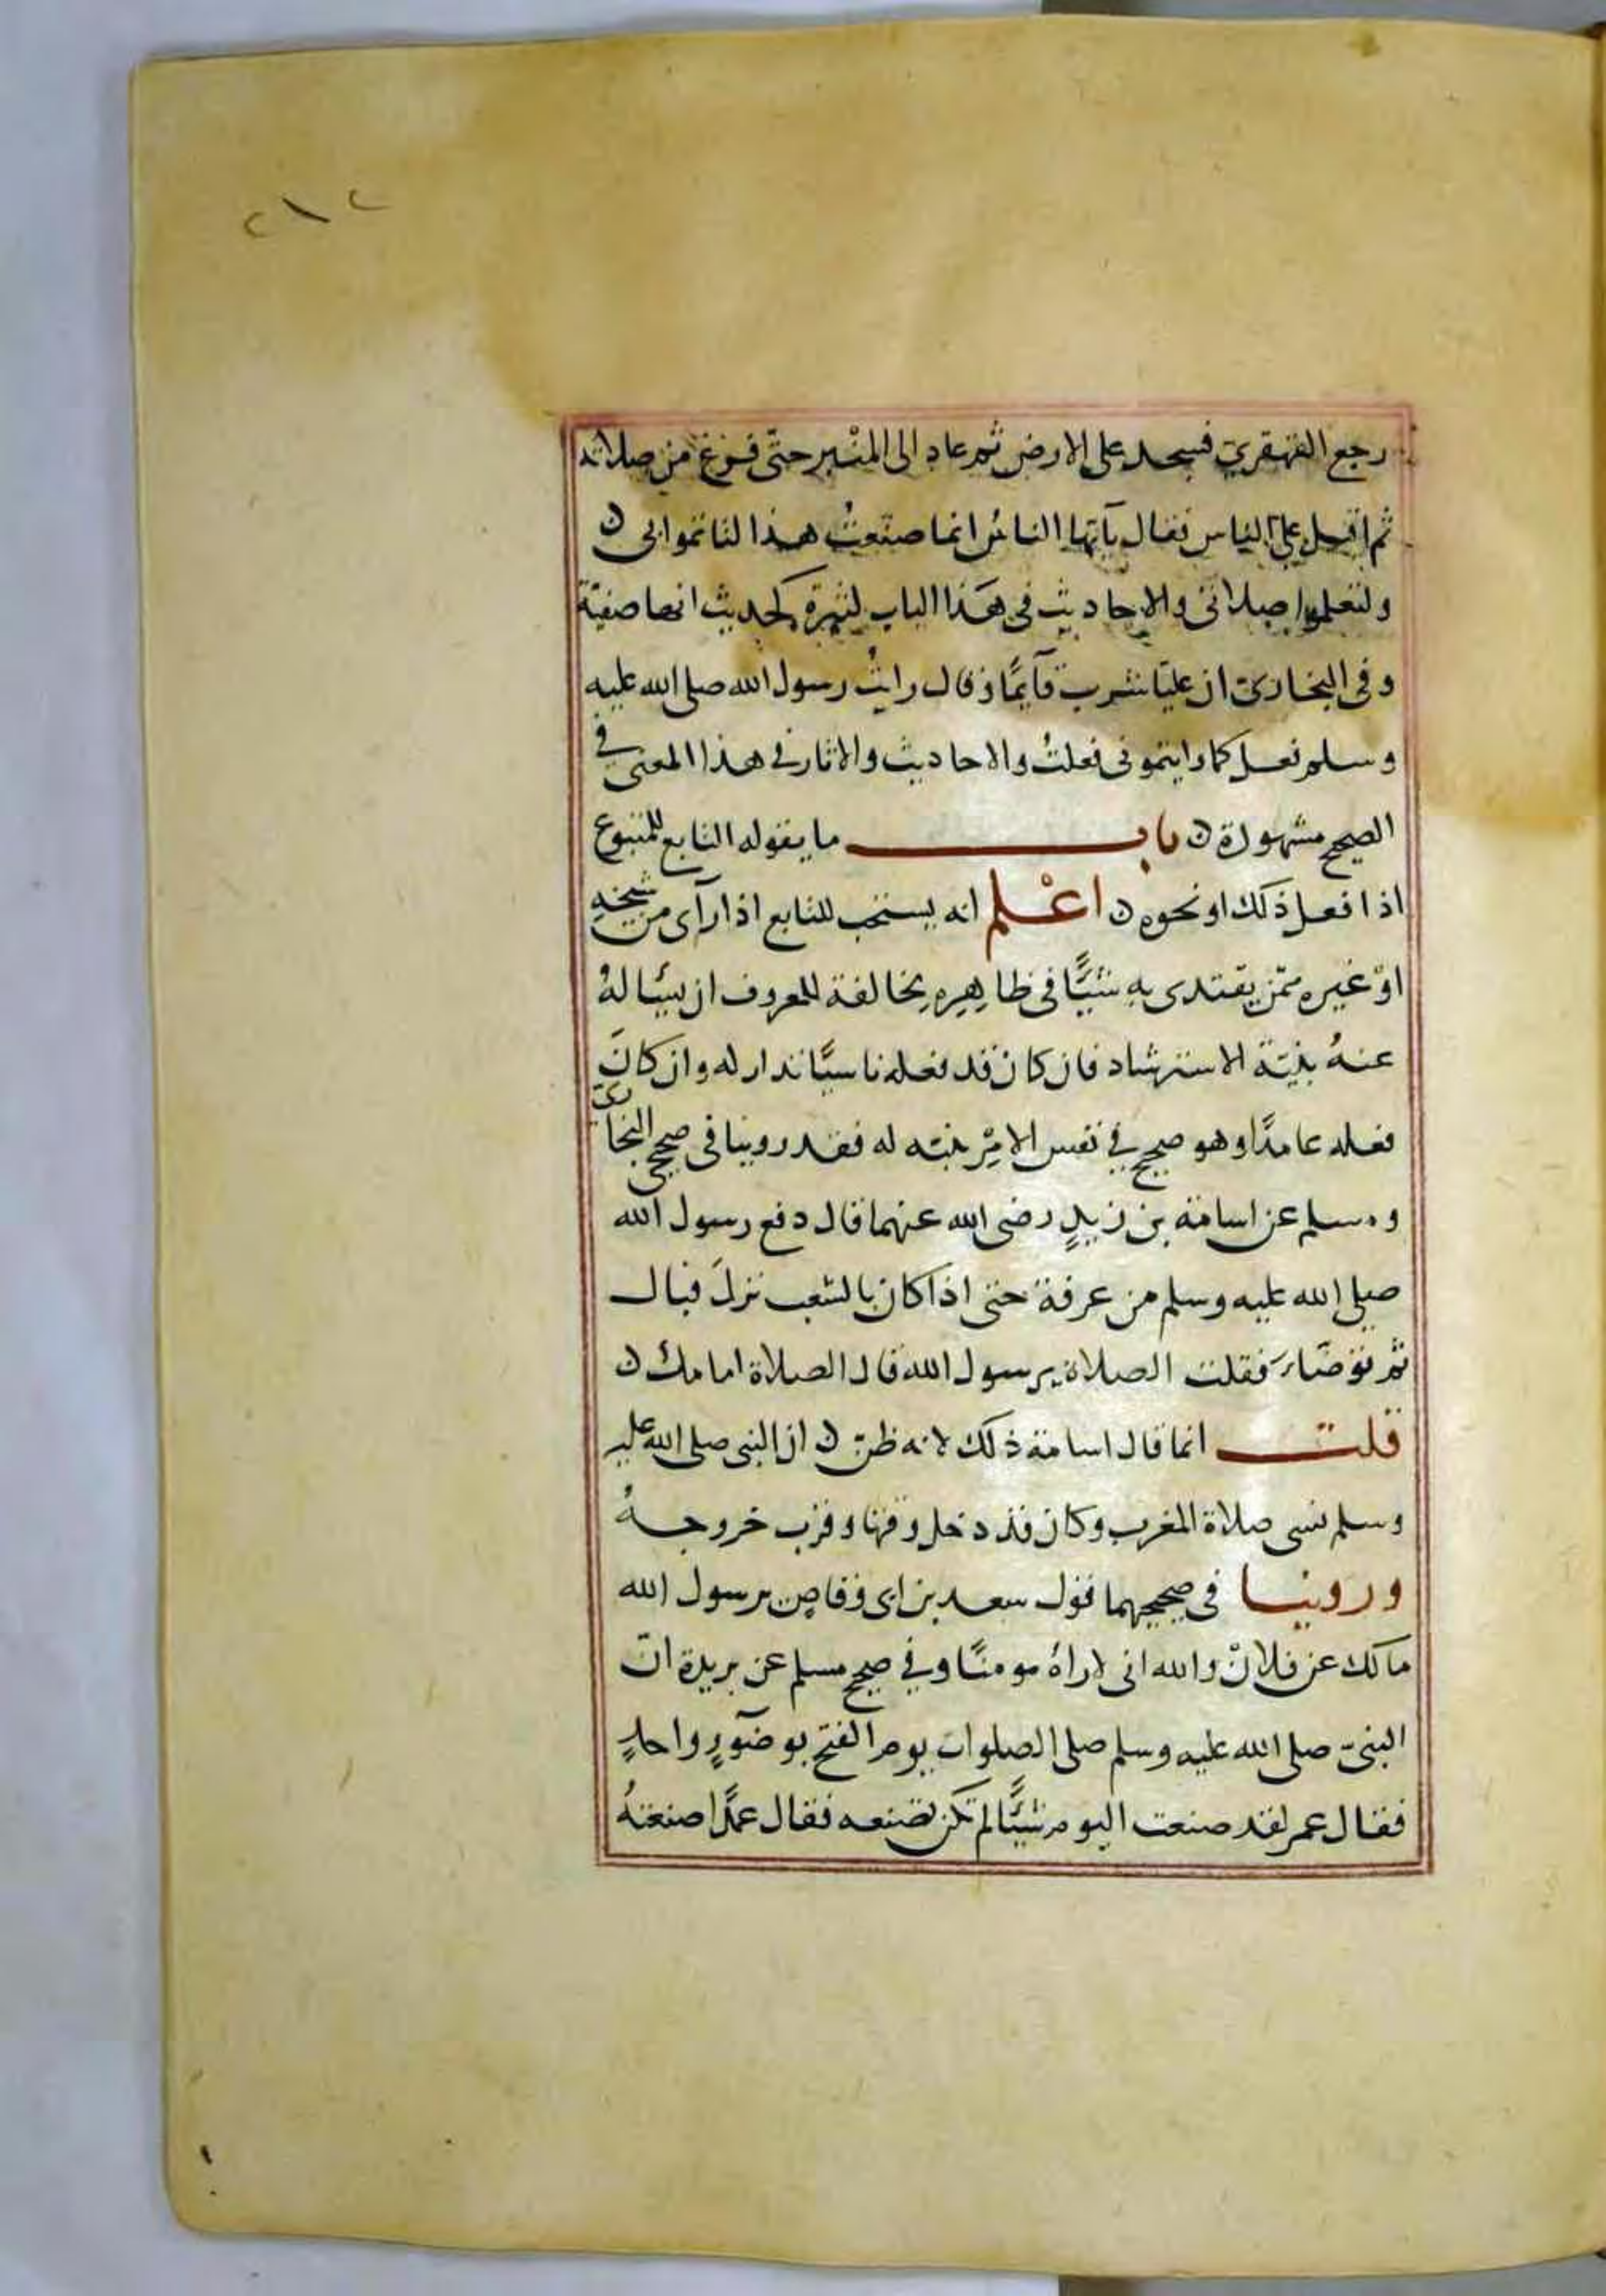 ٢١٢
رجع القهقرى فسجد على الارض ثم عاد الى المنبر حتى فرغ من صلاته
ثم اقبل على الناس فقال يآيها الناس انما صنعت هذا لتاتموا بى ن
ولتعلموا صلاتى والاحاديث فى هذا الباب كثيرة كحديث انها صفية
وفى البخارى ان عليا شرب قآيمًا وقال رايت رسول الله صلى الله عليه
وسلم فعل كما رايتمونى فعلت والاحاديث والاثار فى هذا المعنى في
الصحيح مشهورة ن باب ما يقوله التابع للمتبوع
اذا فعل ذلك او نحوه ن اعْلم انه يستحب للتابع اذا رآى من شيخه
اوْ غيره ممّن يقتدى به شيئًا فى ظاهِرِه مخالفة للمعروف ان يساله
عنهُ بنيّة الاسترشاد فان كان قد فعله ناسيًا تداركه وان كانَ
فعله عامدًا وهو صحيح في نفس الامْر بينه له فقد روينا فى صحيح البخارى
ومسلم عن اسامة بن زيدٍ رضى الله عنهما قال دفع رسول الله
صلى الله عليه وسلم من عرفة حتى اذا كان بالشعب نزلَ فبال
ثم توضاء فقلت الصلاة يرسول الله قال الصلاة امامك ن
قلت انما قال اسامة ذلك لانه ظنّ ن ان النبى صلى الله عليه
وسلم نسى صلاة المغرب وكان قد دخل وقتها وقرب خروجهُ
وروينا فى صحيحيهما قول سعد بن ابى وقاصٍ يرسول الله
مالك عن فلانْ والله انى لاراهُ مومنًا وفي صحيح مسلم عن بريدة انّ
النبىّ صلى الله عليه وسلم صلى الصلوات يوم الفتح بوضوءٍ واحدٍ
فقال عمر لقد صنعت اليوم شيئًا لم تكن تصنعه فقال عمدًا صنعتهُ